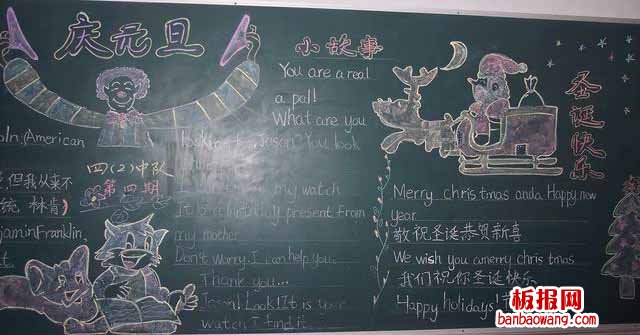 庆元旦
oln.(American
,但我从来不
统 林肯)
njaminFranklin.
四(2)中队
第四期
小故事
You are a real
a pal!
What are you
looking for, Jason? You look
my watch
It is a birthday present from
my mother
Don't worry. I can help you.
Thank you...
Jason! Look! It is your
watch I find it
圣诞快乐
Merry chris tmas anda Happy new
year
敬祝圣诞恭贺新喜
We wish you amerry chris tmas
我们祝你圣诞快乐
Happy holidays!
板报网
banbaowang.com